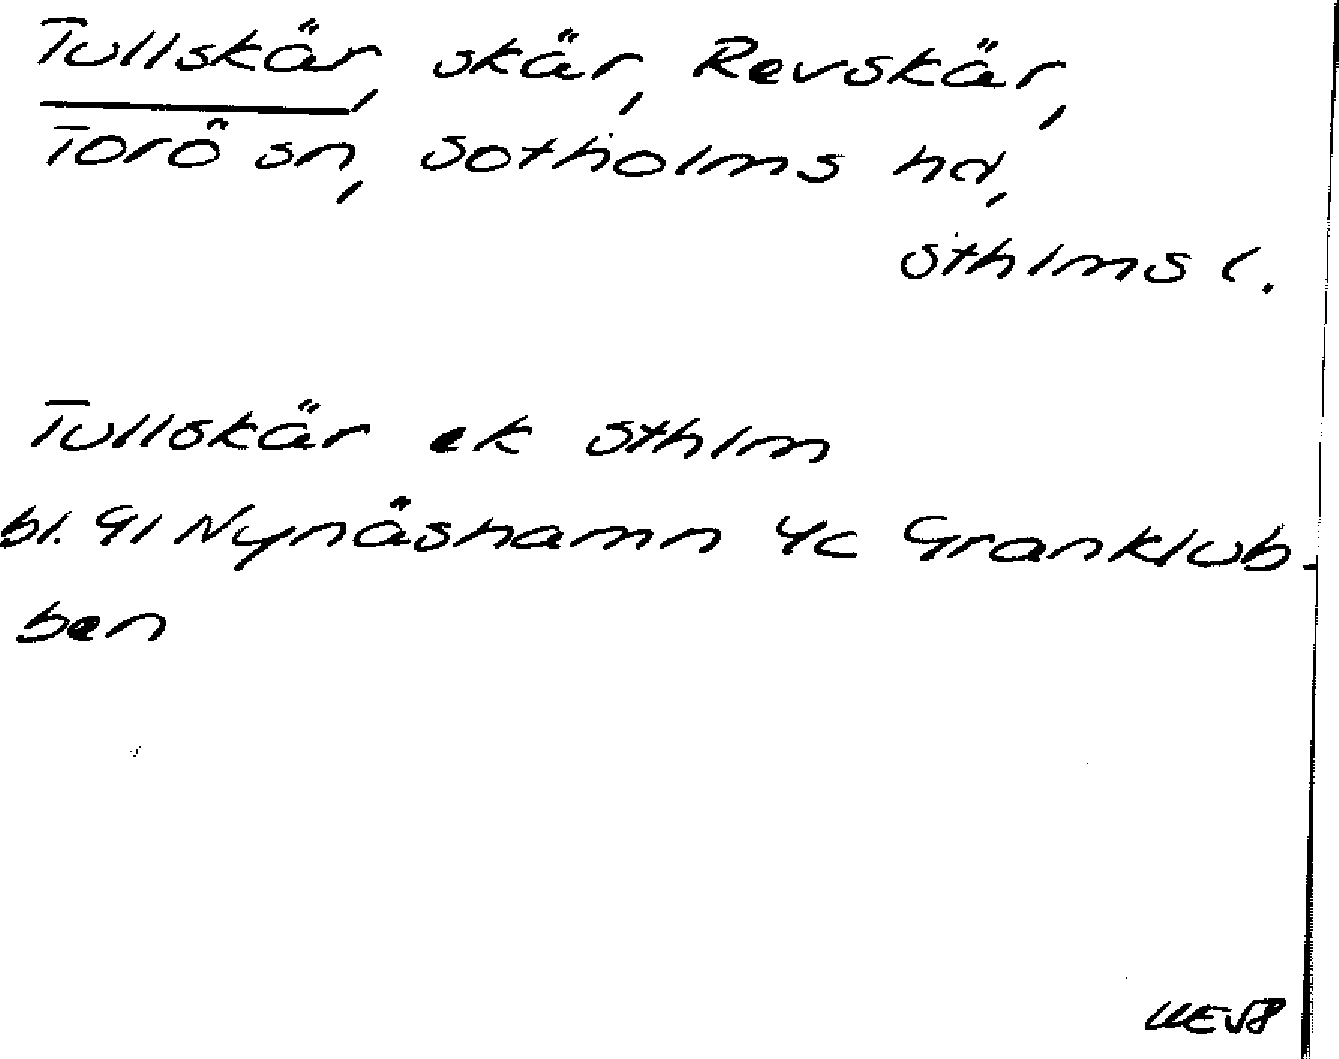 Tullskär, skär, Revskär,
Torö sn, Sotholms hd,
Sthlms l.
Tullskär ek Sthlm
bl. 91 Nynäshamn 4c Granklub-
ben